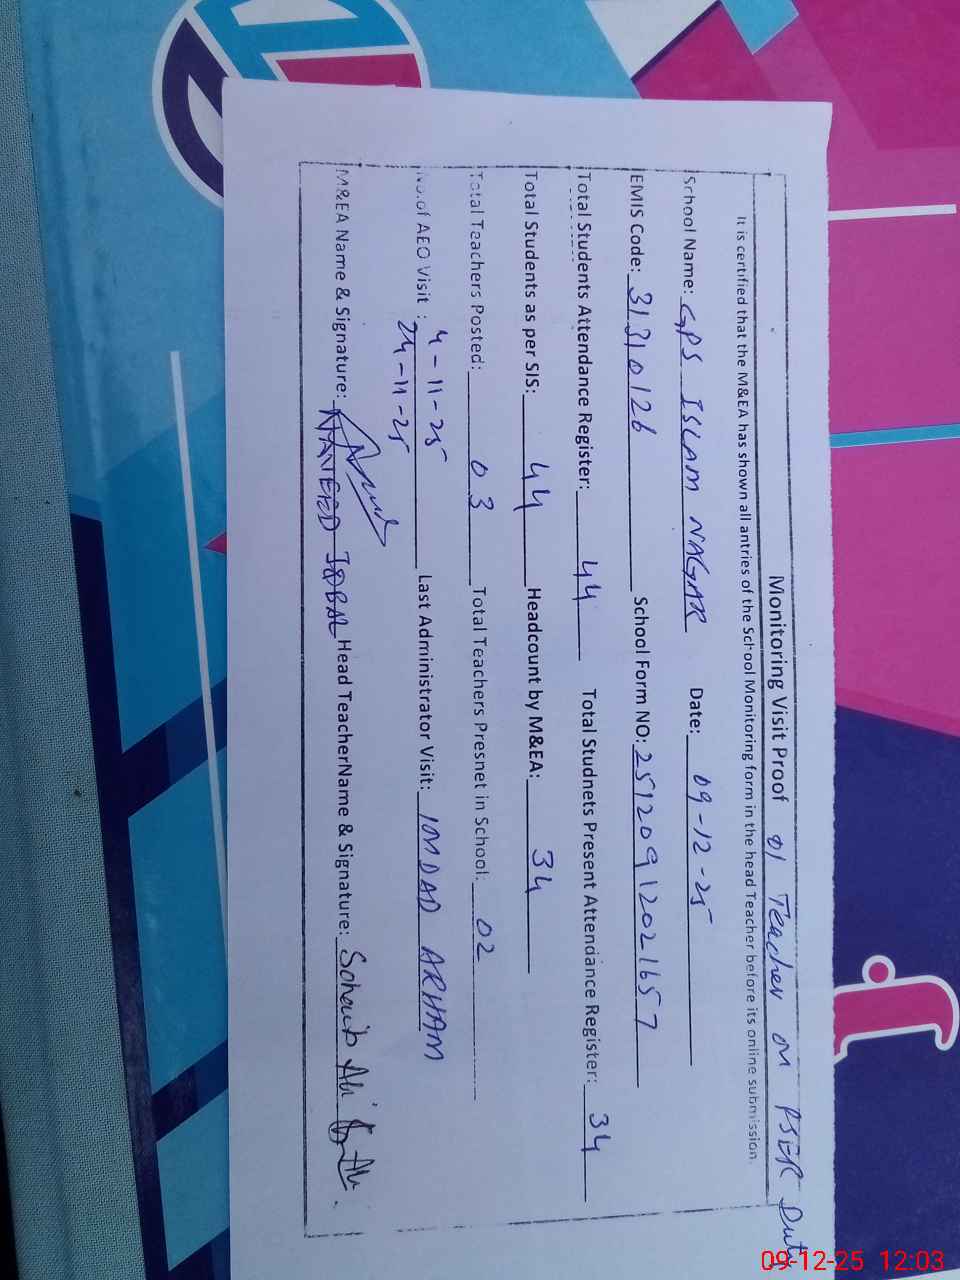 Monitoring Visit Proof 01 Teacher on PSER Duty
It is certified that the M&EA has shown all antries of the School Monitoring form in the head Teacher before its online submission.
School Name: GPS ISLAM NAGAR Date: 09-12-25
EMIS Code: 31310126 School Form NO: 25120912021657
Total Students Attendance Register: 44 Total Studnets Present Attendance Register: 34
Total Students as per SIS: 44 Headcount by M&EA: 34
Total Teachers Posted: 03 Total Teachers Presnet in School: 02
No.of AEO Visit : 4-11-25 Last Administrator Visit: IMDAD ARHAM
24-11-25
M&EA Name & Signature: IQBAL Head TeacherName & Signature: Soheib Ali
09-12-25 12:03